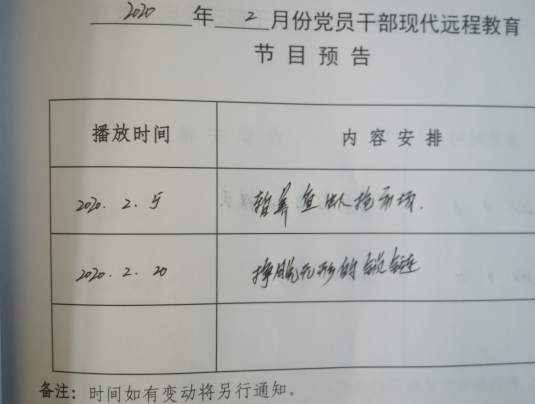 2020 年 2 月份党员干部现代远程教育
节目预告
播放时间 内容安排
2020.2.5 暂养鱼出人抢市场.
2020.2.20 挣脱无形的锁链
备注：时间如有变动将另行通知。